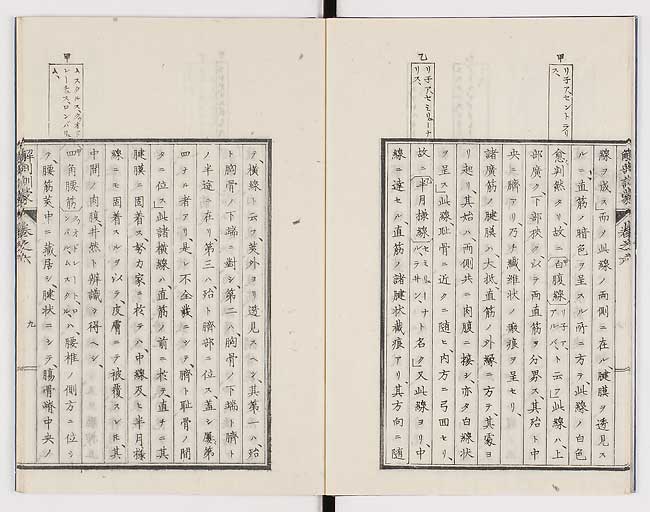 甲
リ子アセントラリス
乙
リ子アセミリューナリス
線ヲ成ス而ノ此線ノ兩側ニ在ル腱膜ヲ透見ス
ルニ直筋ノ暗色ヲ呈スル所ニ方テ此線ノ白色
愈判然タリ、故ニ白腹線リ子ア、アルバト云フ此線ハ上
部廣ク、下部狹ク、以テ兩直筋ヲ分界ス、其殆ト中
央ニ臍アリ、乃チ纎維狀ノ瘢痕ヲ呈セリ、
諸廣筋ノ腱膜ハ大抵直筋ノ外緣ニ方テ、其裏ヨ
リ起リ、其始ハ兩側共ニ肉腹ニ接シ、亦タ白線狀
ヲ呈ス、此線耻骨ニ近クニ随ヒ、内方ニ弓回セリ、
故ニ半月様線ト名ク又此線ヨリ、中
線ニ達セル直筋ノ諸腱狀截痕アリ、其方向ニ随
解剖訓蒙
卷之六
甲
テ、横線ト云フ、英外ヨリ透見スヘシ、其第一ハ殆
ト胸骨ノ下端ニ對シ、第二ハ胸骨ノ下端ト臍ト
ノ半途ニ在リ、第三ハ殆ト臍部ニ位ス、蓋シ屢第
四ナル者アリ是レ不全裁ニシテ、臍ト耻骨ノ間
タニ位ス此諸横線ハ直筋ノ前ニ於テ、直チニ其
腱膜ニ固着ス努力家ニ於テハ中線及ヒ半月様
線ニモ固着スルヲ以テ、皮膚ニテ被覆スレ𪜈其
中間ノ肉腹、井然ト辨識ヲ得ヘシ、
四角腰筋ハ、腰椎ノ側方ニ位シ
テ、腰筋莢中ニ藏居シ、腱狀ニシテ、腸骨嵴中央ノ
解剖訓蒙
卷之六
九